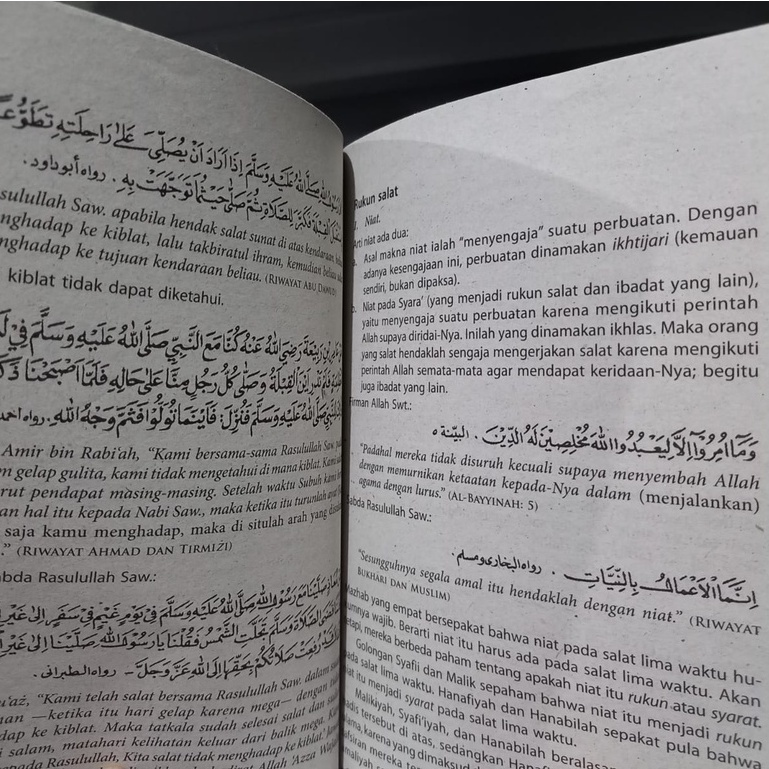 رسول الله صلى الله عليه وسلم إذا أراد أن يصلي على راحلته تطوعا
القبلة فكبر للصلاة ثم صلى حيثما توجهت به . رواه أبو داود .
sulullah Saw. apabila hendak salat sunat di atas kendaraan,
nghadap ke kiblat, lalu takbiratul ihram, kemudian beliau
nghadap ke tujuan kendaraan beliau. (RIWAYAT ABU DAWUD)
kiblat tidak dapat diketahui.
بن ربيعة رضي الله عنه كنا مع النبي صلى الله عليه وسلم في
فلم ندر أين القبلة وصلى كل رجل منا على حاله فلما أصبحنا
النبي صلى الله عليه وسلم فنزل: فأينما تولوا فثم وجه الله. رواه أحمد
Amir bin Rabi'ah, "Kami bersama-sama Rasulullah Saw.
m gelap gulita, kami tidak mengetahui di mana kiblat. Kami
rut pendapat masing-masing. Setelah waktu Subuh kami
an hal itu kepada Nabi Saw., maka ketika itu turunlah ayat
saja kamu menghadap, maka di situlah arah yang
." (RIWAYAT AHMAD DAN TIRMIZI)
abda Rasulullah Saw.:
صلينا مع رسول الله صلى الله عليه وسلم في يوم غيم في سفر إلى غير
الصلاة وسلم تجلت الشمس فقلنا يا رسول الله صلينا إلى غير
رفعت صلاتكم بحقها إلى الله عز وجل - . رواه الطبراني .
u'az, "Kami telah salat bersama Rasulullah Saw. dalam
an —ketika itu hari gelap karena mega— dengan
dap ke kiblat. Maka tatkala sudah selesai salat dan
i salam, matahari kelihatan keluar dari balik mega.
epada Rasulullah, Kita salat tidak menghadap ke kiblat.'
Allah 'Azza Wajalla
Rukun salat
1. Niat.
Arti niat ada dua:
a. Asal makna niat ialah "menyengaja" suatu perbuatan. Dengan
adanya kesengajaan ini, perbuatan dinamakan ikhtijari (kemauan
sendiri, bukan dipaksa).
b. Niat pada Syara' (yang menjadi rukun salat dan ibadat yang lain),
yaitu menyengaja suatu perbuatan karena mengikuti perintah
Allah supaya diridai-Nya. Inilah yang dinamakan ikhlas. Maka orang
yang salat hendaklah sengaja mengerjakan salat karena mengikuti
perintah Allah semata-mata agar mendapat keridaan-Nya; begitu
juga ibadat yang lain.
Firman Allah Swt.:
وَمَا أُمِرُوا إِلَّا لِيَعْبُدُوا اللهَ مُخْلِصِينَ لَهُ الدِّينَ . البينة ٥
"Padahal mereka tidak disuruh kecuali supaya menyembah Allah
dengan memurnikan ketaatan kepada-Nya dalam (menjalankan)
agama dengan lurus." (AL-BAYYINAH: 5)
Sabda Rasulullah Saw.:
إِنَّمَا الْأَعْمَالُ بِالنِّيَّاتِ . رواه البخاري ومسلم .
"Sesungguhnya segala amal itu hendaklah dengan niat." (RIWAYAT
BUKHARI DAN MUSLIM)
Mazhab yang empat bersepakat bahwa niat pada salat lima waktu hu-
kumnya wajib. Berarti niat itu harus ada pada salat lima waktu. Akan
tetapi, mereka berbeda paham tentang apakah niat itu rukun atau syarat.
Golongan Syafii dan Malik sepaham bahwa niat itu menjadi rukun
pada salat lima waktu. Hanafiyah dan Hanabilah sepakat pula bahwa
niat itu menjadi syarat pada salat lima waktu.
Malikiyah, Syafi'iyah, dan Hanabilah beralasan
hadis tersebut di atas, sedangkan
karena yang dimaksud
mereka